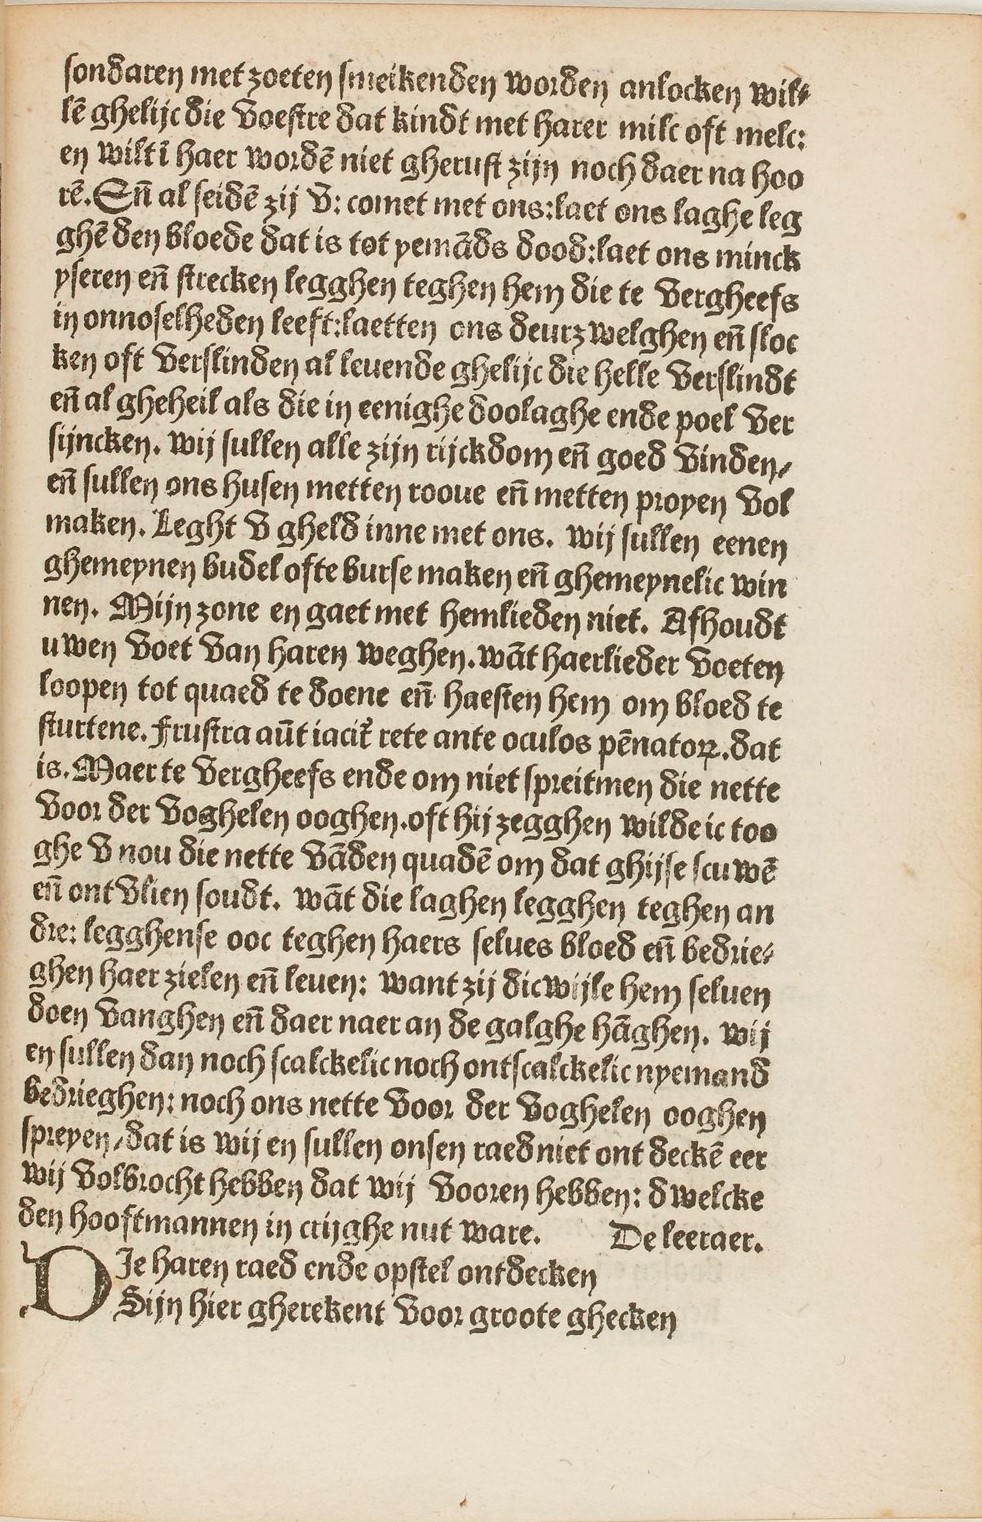 sondaren met zoeten smeikenden worden anlocken wil⸗
lē ghelijc die voestre dat kindt met harer milc oft melc:
en wilt ī haer wordē niet gherust zijn noch daer na hoo
rē. Eñ al seidē zij v: comet met ons: laet ons laghe leg
ghē den bloede dat is tot yemāds dood: laet ons minck
yseren eñ strecken legghen teghen hem die te vergheefs
in onnoselheden leeft: laetten ons deurzwelghen eñ sloc
ken oft verslinden al leuende ghelijc die helle verslindt
eñ al gheheil als die in eenighe doolaghe ende poel ver
sijncken. wij sullen alle zijn rijckdom eñ goed vinden/
eñ sullen ons husen metten rooue eñ metten proyen vol
maken. Leght v gheld inne met ons. wij sullen eenen
ghemeynen budel ofte burse maken eñ ghemeynelic win
nen. Mijn zone en gaet met hemlieden niet. Afhoudt
uwen voet van haren weghen. wāt haerlieder voeten
loopen tot quaed te doene eñ haesten hem om bloed te
sturtene. Frustra aūt iacit᷑ rete ante oculos pēnatoꝝ. dat
is. Maer te vergheefs ende om niet spreitmen die nette
voor der voghelen ooghen. oft hij zegghen wilde ic too
ghe v nou die nette vāden quadē om dat ghijse scuwē
eñ ontvlien soudt. wāt die laghen legghen teghen an
dre: legghense ooc teghen haers selues bloed eñ bedrie⸗
ghen haer zielen eñ leuen: want zij dicwijle hem seluen
doen vanghen eñ daer naer an de galghe hāghen. wij
en sullen dan noch scalckelic noch ontscalckelic nyemand
bedrieghen: noch ons nette voor der voghelen ooghen
spreyen/dat is wij en sullen onsen raed niet ont deckē eer
wij volbrocht hebben dat wij vooren hebben: dwelcke
den hooftmannen in crijghe nut ware. De leeraer.
DIe haren raed ende opstel ontdecken
Sijn hier gherekent voor groote ghecken